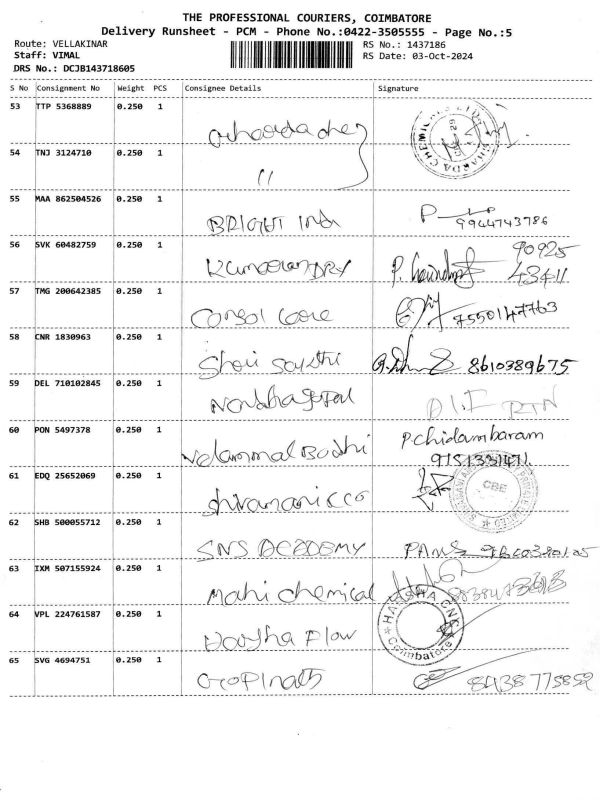 THE PROFESSIONAL COURIERS, COIMBATORE
Delivery Runsheet - PCM - Phone No.:0422-3505555 - Page No.:5
Route: VELLAKINAR RS No.: 1437186
Staff: VIMAL RS Date: 03-Oct-2024
DRS No.: DCJB143718605
S No Consignment No Weight PCS Consignee Details Signature
53 TTP 5368889 0.250 1
54 TNJ 3124710 0.250 1 11
55 MAA 862504526 0.250 1 BRIGHT Ind 9944743786
56 SVK 60482759 0.250 1 90925
43411
57 TMG 200642385 0.250 1 Consol Core 7550147763
58 CNR 1830963 0.250 1 Shri Sakthi 8610389675
59 DEL 710102845 0.250 1 Nandhagopal
60 PON 5497378 0.250 1 Velammal Bodhi P Chidambaram
61 EDQ 25652069 0.250 1 Shivamani & co CBE
62 SHB 500055712 0.250 1 SNS ACADEMY
63 IXM 507155924 0.250 1 Mahi chemical
64 VPL 224761587 0.250 1 Harsha Flow HARSHA CNC Coimbatore
65 SVG 4694751 0.250 1 Gopinath 8438775852